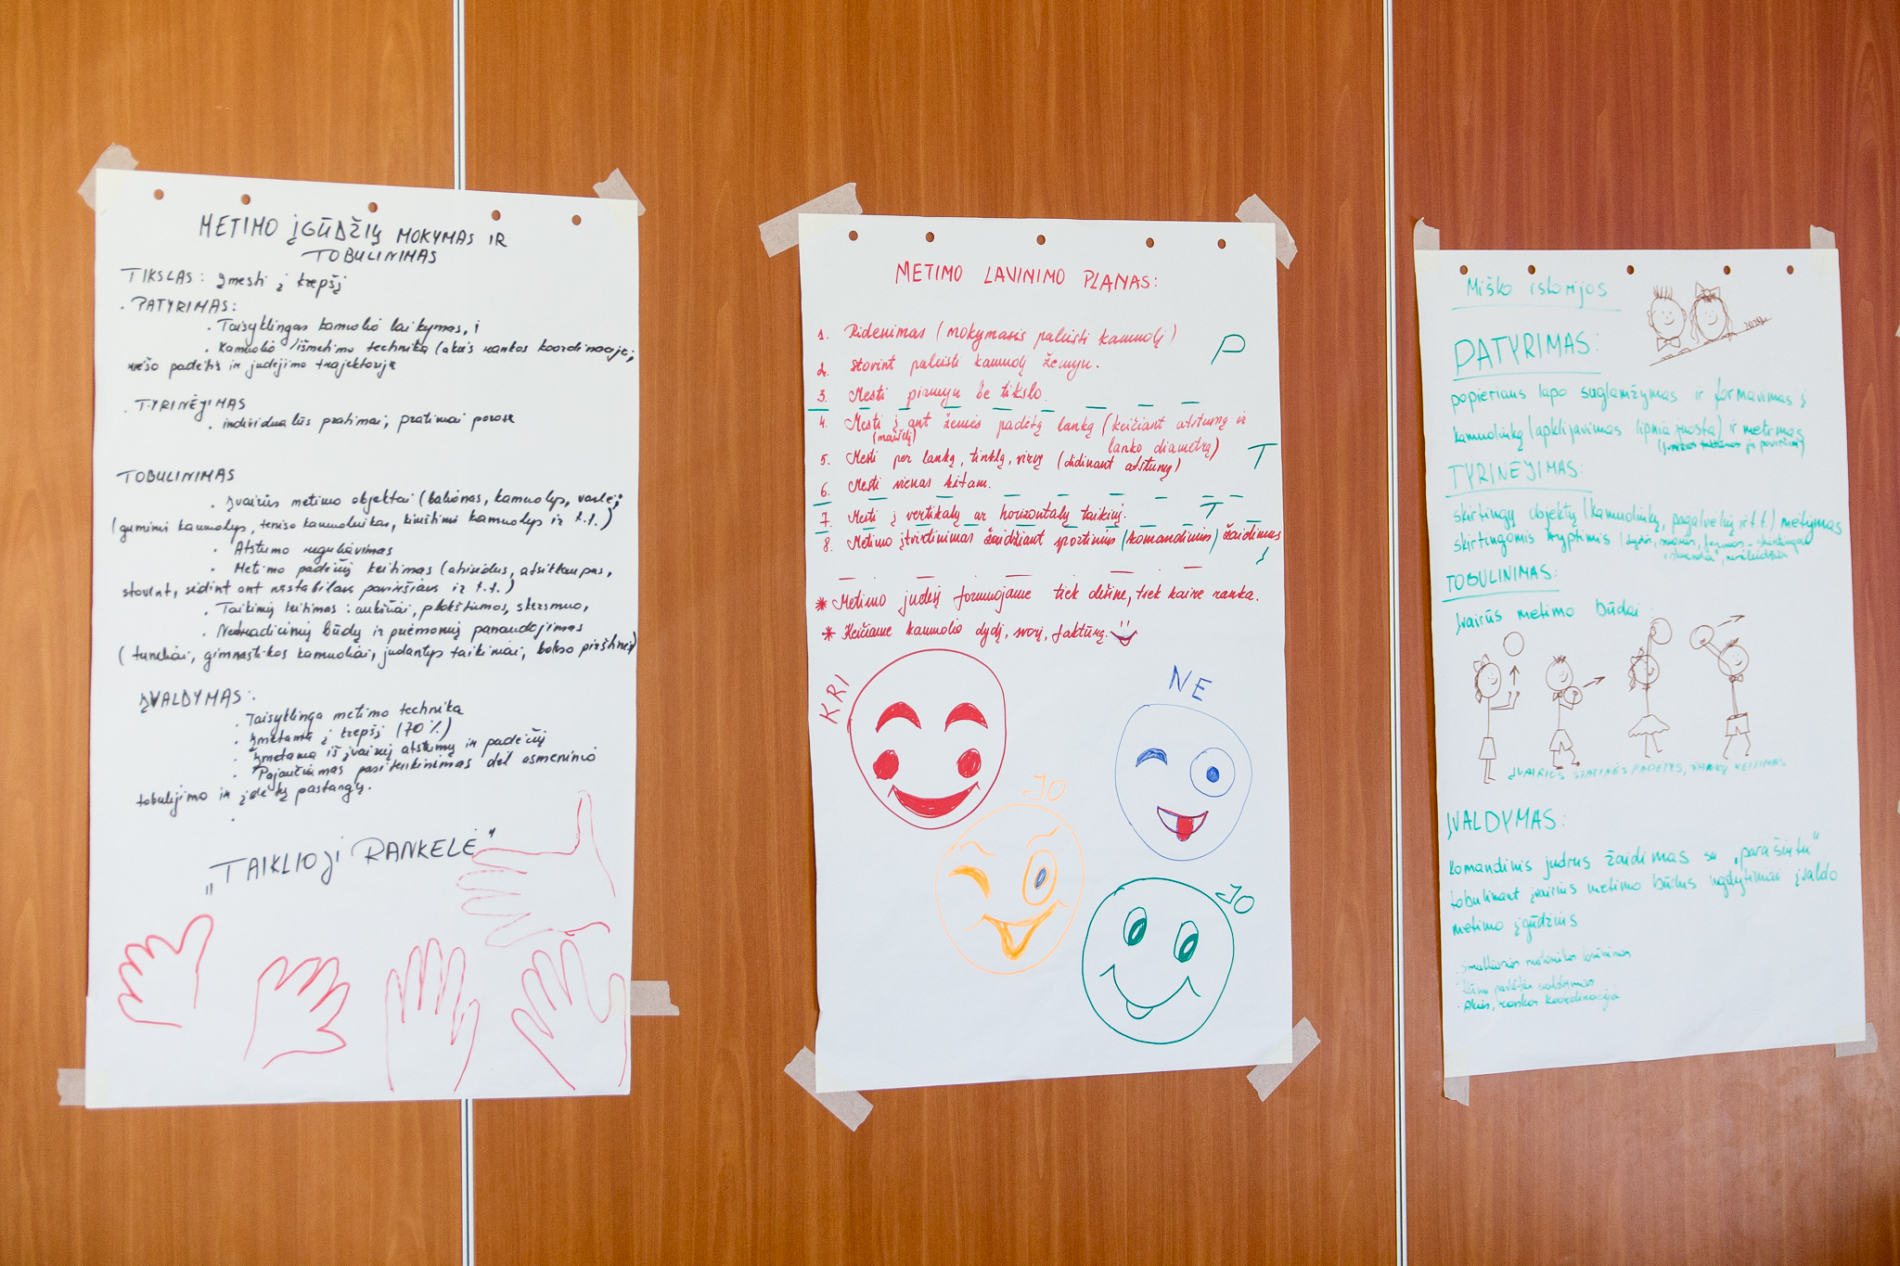 METIMO ĮGŪDŽIŲ MOKYMAS IR
TOBULINIMAS
TIKSLAS: Įmesti į krepšį
· PATYRIMAS:
· Taisyklingas kamuolio laikymas, i
· Kamuolio išmetimo technika (akis rankos koordinacija;
riešo padėtis ir judėjimo trajektorija
· TYRINĖJIMAS
· individualūs pratimai, pratimai porose
TOBULINIMAS
· Įvairūs metimo objektai (balionas, kamuolys,
(guminis kamuolys, teniso kamuoliukas, kamuolys ir t.t.)
· Atstumo reguliavimas
· Metimo padėčių keitimas (atsisėdus, atsiklaupus,
stovint, sėdint ant nestabilaus paviršiaus ir t.t.)
· Taikinių keitimas: aukščiai, plokštumos, skersmuo,
· Netradicinių būdų ir priemonių panaudojimas
(tuneliai, gimnastikos kamuoliai, judantys taikiniai, bokso pirštinės)
ĮVALDYMAS:
· Taisyklinga metimo technika
· Įmetama į krepšį (70%)
· Įmetama iš įvairių atstumų ir padėčių
· Pajaučiamas pasitenkinimas dėl asmeninio
tobulėjimo ir įdėtų pastangų.
„TAIKLIOJI RANKELĖ"
METIMO LAVINIMO PLANAS:
1. Ridenimas (mokymasis paleisti kamuolį)
P
2. Stovint paleisti kamuolį žemyn.
3. Mesti pirmyn be tikslo.
4. Mesti į ant žemės padėtą lanką (keičiant atstumą ir
(maišelį) lanko diametrą)
5. Mesti per lanką, tinklą, virvę (didinant atstumą)
T
6. Mesti vienas kitam.
7. Mesti į vertikalų ar horizontalų taikinį.
T
8. Metimo įtvirtinimas žaidžiant sportinius (komandinius) žaidimus
* Metimo judesį formuojame tiek dešine, tiek kaire ranka.
* Keičiame kamuolio dydį, svorį, faktūrą.
KRI
NE
JO
JO
Miško istorijos
PATYRIMAS:
popieriaus lapo suglamžymas ir formavimas į
kamuoliuką (apklijavimas lipnia juosta) ir metimas
TYRINĖJIMAS:
skirtingų objektų (kamuoliukų, pagalvėlių ir t.t.) mėtymas
skirtingomis kryptimis
TOBULINIMAS:
Įvairūs metimo būdai:
ĮVAIRIOS PADĖTYS, RANKŲ KEITIMAS
ĮVALDYMAS:
Komandinis judrus žaidimas su „parašiutu"
tobulinant įvairius metimo būdus ugdytiniai įvaldo
metimo įgūdžius
· Smulkiosios motorikos lavinimas
· Kūno padėties valdymas
· Akies, rankos koordinacija